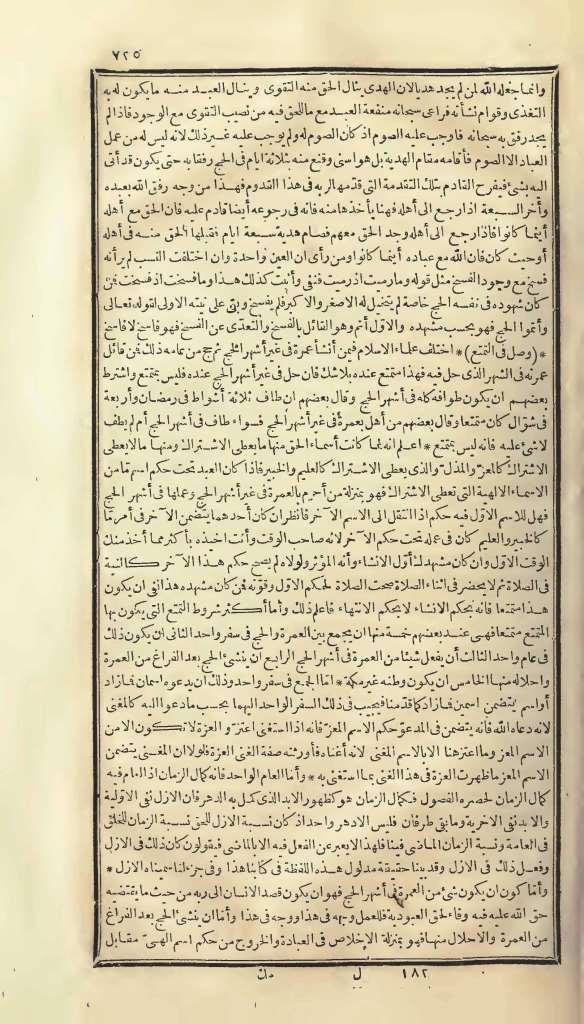 ٦٢٥
وانما جعله الله لمن لم يجد هديا لان الهدى ينال الحق منه التقوى وينال العبد منه ما يكون له به
التغذى وقوام نشأته فراعى سبحانه منفعة العبد مع ما للحق فيه من نصيب التقوى مع الوجود فاذا لم
يجد رفق به سبحانه فاوجب عليه الصوم اذ كان الصوم له ولم يوجب عليه غير ذلك لانه ليس له من عمل
العباد الا الصوم فأقامه مقام الهدية بل هو اسنى وقنع منه بثلاثة ايام فى الحج رفقا به حتى يكون قد أتى
اليه بشئ فيفرح القادم بتلك التقدمة التى قدّمها لربه فى هذا القدوم فهذا من وجه رفق الله بعبده
وأخر السبعة اذا رجع الى أهله فهنا يأخذها منه فانه فى رجوعه أيضا قادم عليه فان الحق مع أهله
أينما كانوا فاذا رجع الى أهله وجد الحق معهم فصام هدية سبعة ايام فقبلها الحق منه فى أهله
أو حيث كان فان الله مع عباده أينما كانوا ومن رأى ان العين واحدة وان اختلفت النسب لم ير أنه
فسخ مع وجود الفسخ مثل قوله وما رميت اذ رميت فنفى وأثبت كذلك هذا وما فسخت اذ فسخت فمن
كان شهوده فى نفسه الحج خاصة لم يتخيل له الاصغر والاكبر فلم يفسخ وبقى على نيته الاولى لقوله تعالى
وأتموا الحج فهو بحسب مشهده والاول أتم وهو القائل بالفسخ والتعدى عن الفسخ فهو فاسخ لا فاسخ
* (وصل فى التمتع) * اختلف علماء الاسلام فيمن أنشأ عمرة فى غير أشهر الحج ثم حج من عامه ذلك فمن قائل
عمرته فى الشهر الذى حل فيه فهذا متمتع عنده بلا شك فان حل فى غير أشهر الحج عنده فليس بمتمتع واشترط
بعضهم ان يكون طوافه كله فى أشهر الحج وقال بعضهم ان طاف ثلاثة أشواط فى رمضان وأربعة
فى شوّال كان متمتعا وقال بعضهم من أهل بعمرة فى غير أشهر الحج فسواء طاف فى أشهر الحج أم لم يطف
لا شئ عليه فانه ليس بمتمتع * اعلم انه لما كانت أسماء الحق منها ما يعطى الاشتراك ومنها ما لا يعطى
الاشتراك كالمعز والمذل والذى يعطى الاشتراك كالعليم والخبير فاذا كان العبد تحت حكم اسم مّا من
الاسماء الالهية التى تعطى الاشتراك فهو بمنزلة من أحرم بالعمرة فى غير أشهر الحج وعملها فى أشهر الحج
فهل للاسم الاول فيه حكم اذا انتقل الى الاسم الآخر فانظر ان كان أحدهما يتضمن الآخر فى أمر مّا
كالخبير والعليم كان فى عمله تحت حكم الآخر لانه صاحب الوقت وأنت اخيذه بأكثر مما أخذ منك
الوقت الاول وان كان مشهدك أول الانشاء وأنه المؤثر ولولاه لم يصح حكم هذا الآخر كالنية
فى الصلاة ثم لا يحضر فى اثناء الصلاة صحت الصلاة لحكم الاول وقوته فمن كان مشهده هذا نفى ان يكون
هذا متمتعا فانه بحكم الانشاء لا بحكم الانتهاء فاعلم ذلك وأما أكثر شروط التمتع التى يكون بها
المتمتع متمتعا فهى عند بعضهم خمسة منها ان يجمع بين العمرة والحج فى سفر واحد الثانى ان يكون ذلك
فى عام واحد الثالث أن يفعل شيئا من العمرة فى أشهر الحج الرابع ان ينشئ الحج بعد الفراغ من العمرة
واحلاله منها الخامس ان يكون وطنه غير مكة * امّا الجمع فى سفر واحد وذلك ان يدعوه اسمان فما زاد
أو اسم يتضمن اسمين فما زاد كما قدّمنا فيجيب فى ذلك السفر الواحد اليهما بحسب ما دعوا اليه كالمغنى
لانه دعاه الله فانه يتضمن فى المدعوّ حكم الاسم المعز فانه اذا استغنى اعتز والعزة لا تكون الا من
الاسم المعز وما اعتز هنا الا بالاسم المغنى لانه أغناه فأورثه صفة الغنى العزة فلولا ان المغنى يتضمن
الاسم المعز ما ظهرت العزة فى هذا الغنى بما استغنى به * وأما العام الواحد فانه كمال الزمان اذ العام فيه
كمال الزمان لحصره الفصول فكمال الزمان هو كظهور الابد الذى كمل به الدهر فان الازل نفى الاولية
والابد نفى الاخرية وما بقى طرفان فليس الا دهر واحد اذ كان نسبة الازل للحق نسبة الزمان للخلق
فى العامة ونسبة الزمان الماضى فينا فلهذا لا يعبر عن الفعل فيه الا بالماضى فيقولون كان ذلك فى الازل
وفعل ذلك فى الازل وقد بينا حقيقة مدلول هذه اللفظة فى كتابنا هذا وفى جزء لنا سميناه الازل *
وأما كون ان يكون شئ من العمرة فى أشهر الحج فهو ان يكون قصد الانسان الى ربه من حيث ما يقتضيه
حق الله عليه فيه وفاء لحق العبودية فللعمل وجه فى هذا ووجه فى هذا وأما ان ينشئ الحج بعد الفراغ
من العمرة والاحلال منها فهو بمنزلة الاخلاص فى العبادة والخروج من حكم اسم الهىّ مقابل
١٨٢ ل مك